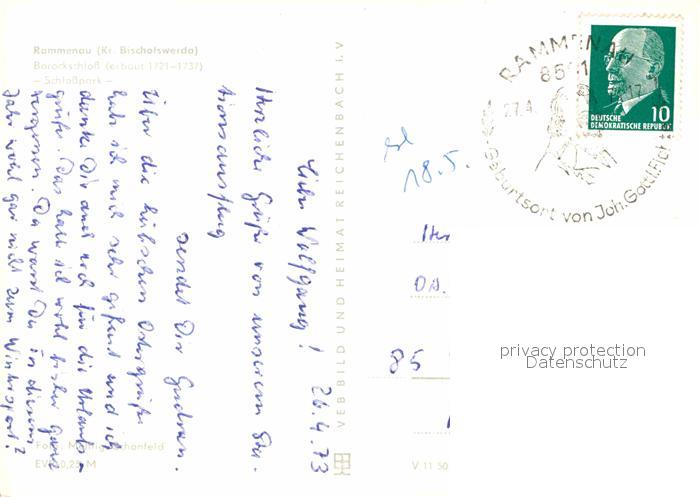 Rammenau (Kr. Bischofswerda)
Barockschloß (erbaut 1721-1737)
– Schloßpark –
26.4.73
Lieber Wolfgang!
Herzliche Grüße von unserem
sendet Dir Gudrun.
Über die hübschen Ostergrüße
hab ich mich sehr gefreut und ich
danke Dir auch noch für die Urlaubs-
grüße. Das hatte ich wohl bisher ganz
vergessen. Da warst Du in diesem
Jahr wohl gar nicht zum Wintersport?
EV 0,25 M
VEB BILD UND HEIMAT REICHENBACH I.V
V 11 50
18.5.
85
RAMMENAU
8501
27.4.
Geburtsort von Joh. Gottl. Fich
10
DEUTSCHE
DEMOKRATISCHE REPUBLIK
privacy protection
Datenschutz